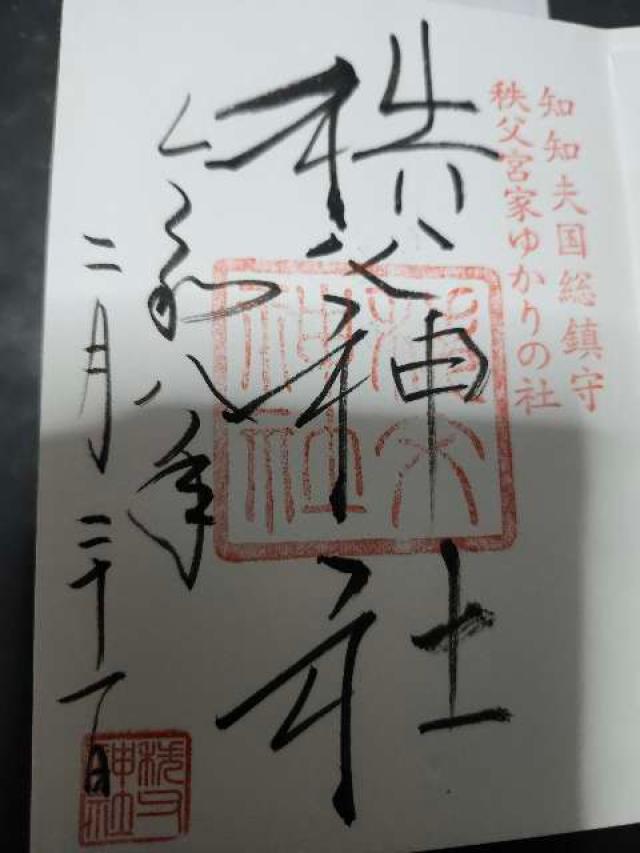 知知夫国総鎮守
秩父宮家ゆかりの社
秩父神社
令和八年
二月二十一日
秩父神社
秩父神社